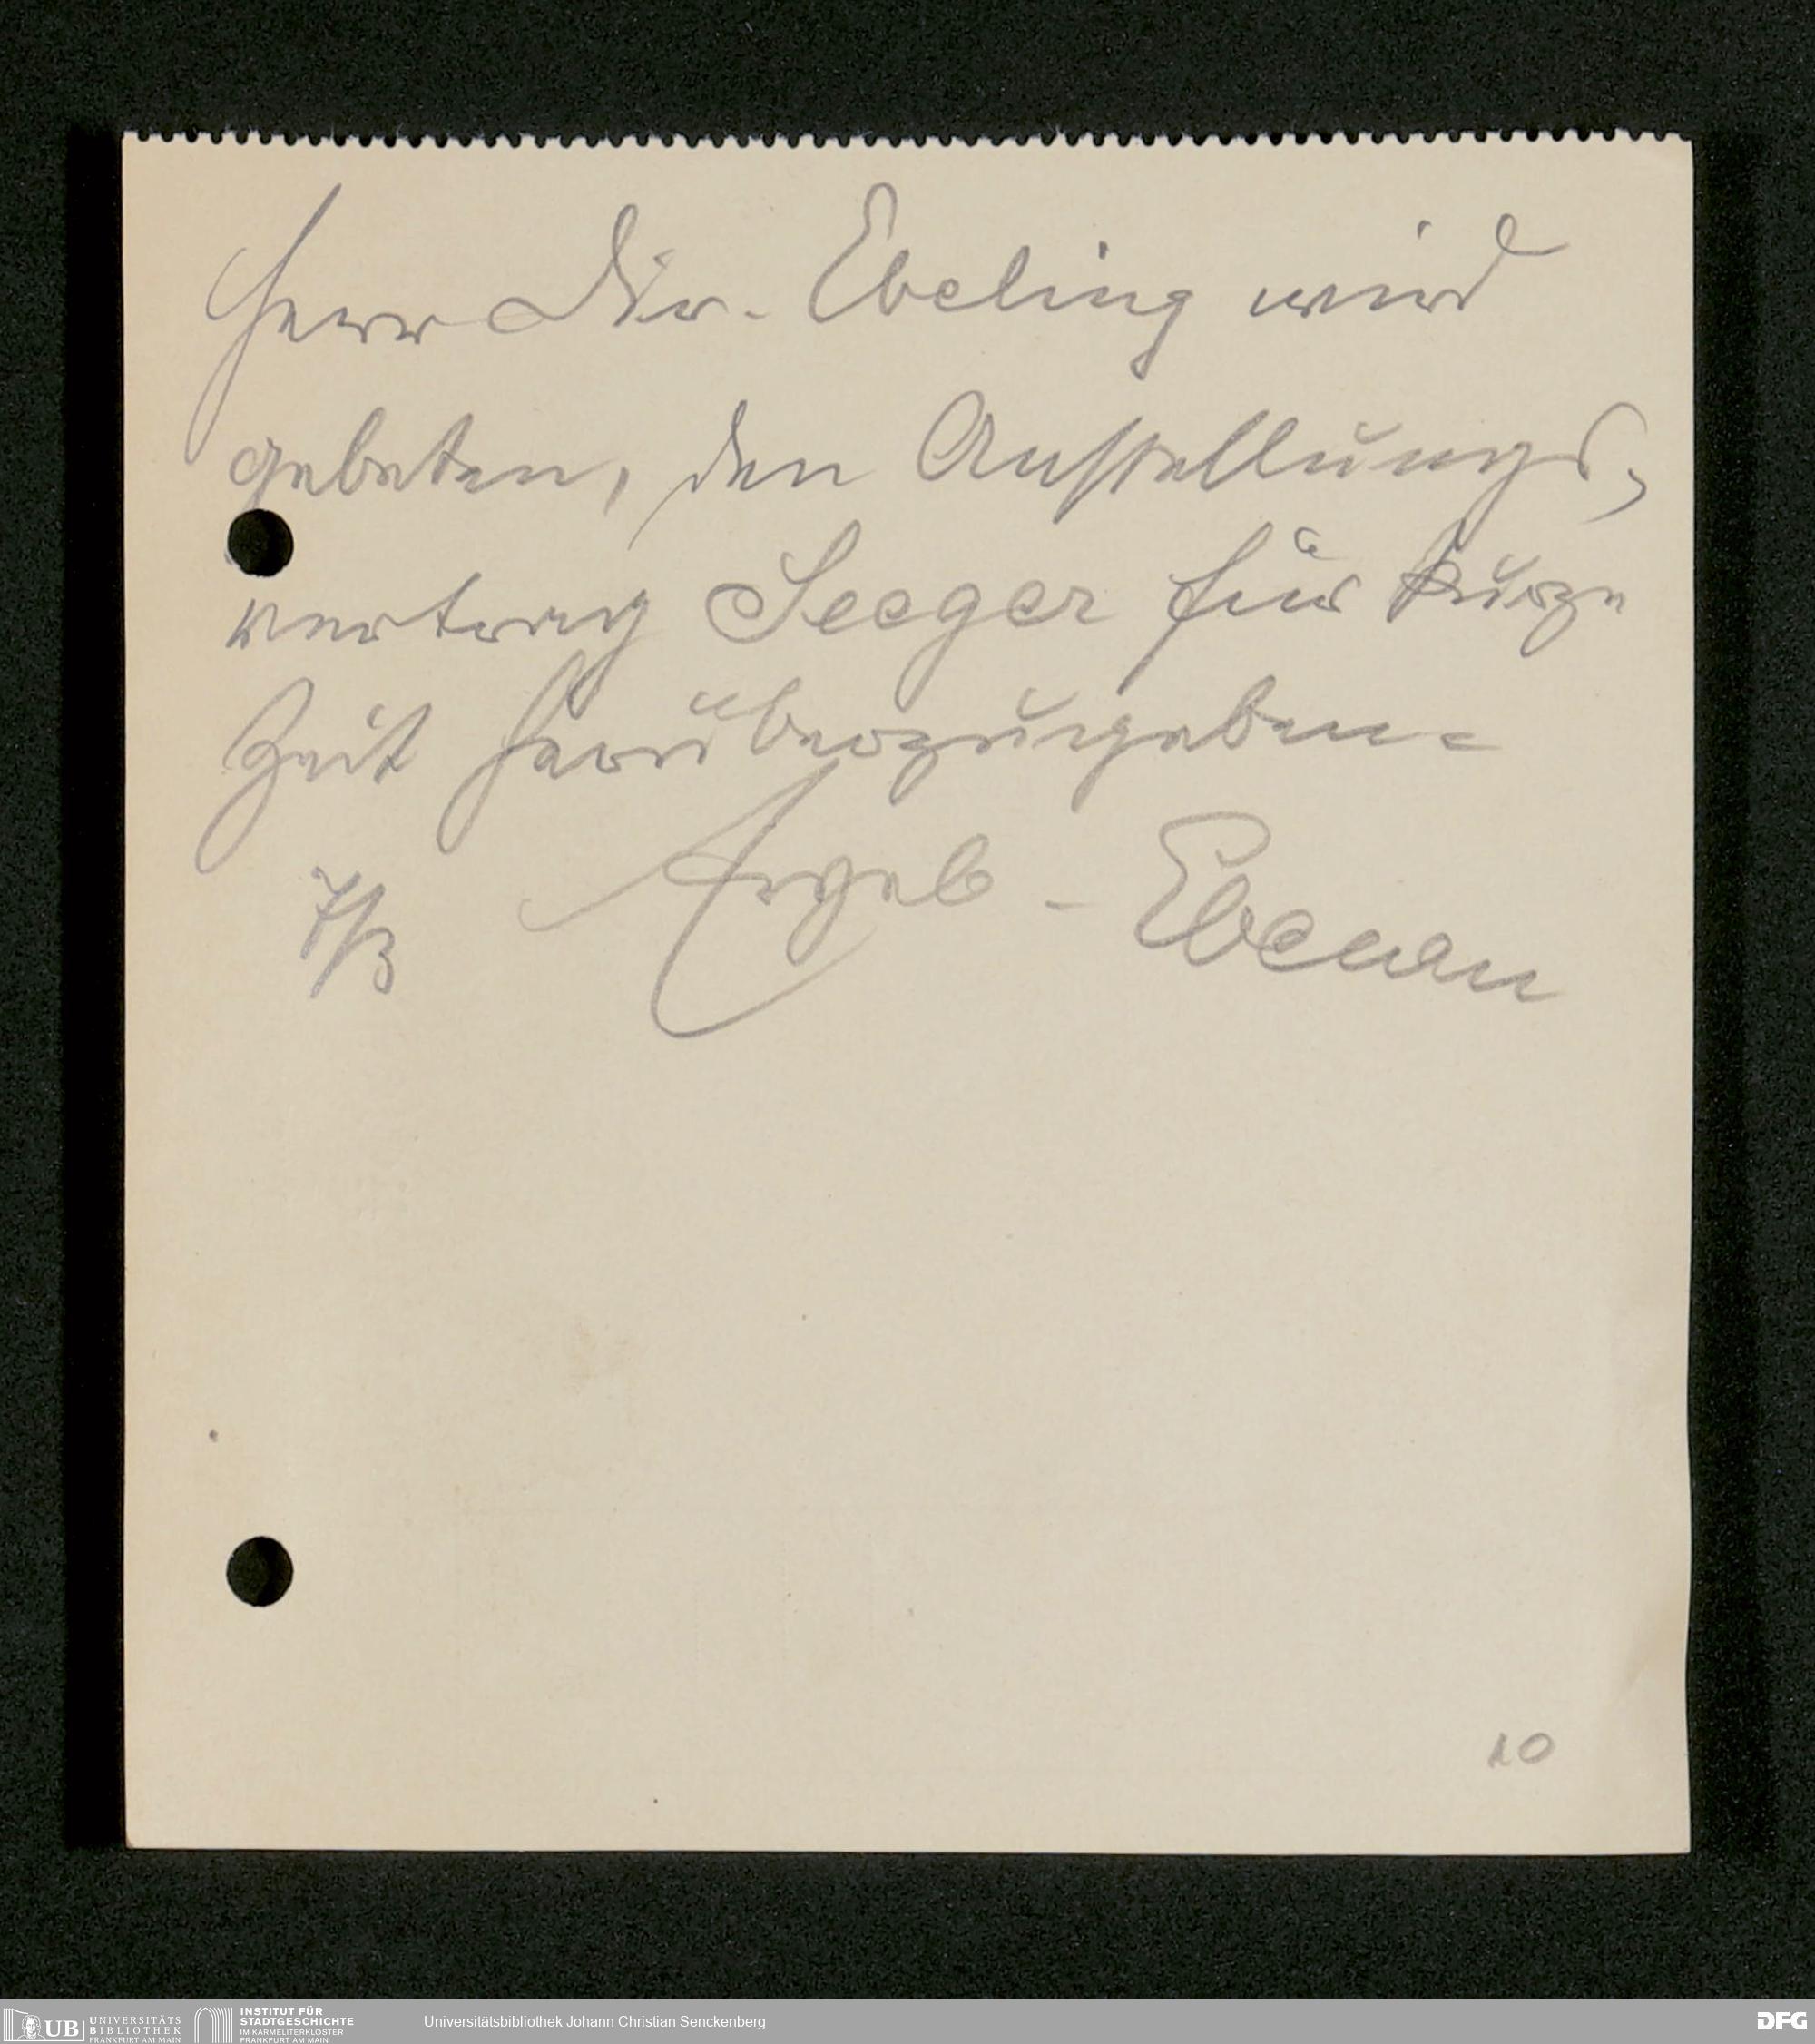 Herr Dir. Ebeling wird
gebeten, den Anstellungs-
vertrag Seeger für kurze
Zeit herüberzugeben.
7/3 Ergeb.
10
UB UNIVERSITÄTS BIBLIOTHEK FRANKFURT AM MAIN
INSTITUT FÜR STADTGESCHICHTE IM KARMELITERKLOSTER FRANKFURT AM MAIN
Universitätsbibliothek Johann Christian Senckenberg
DFG